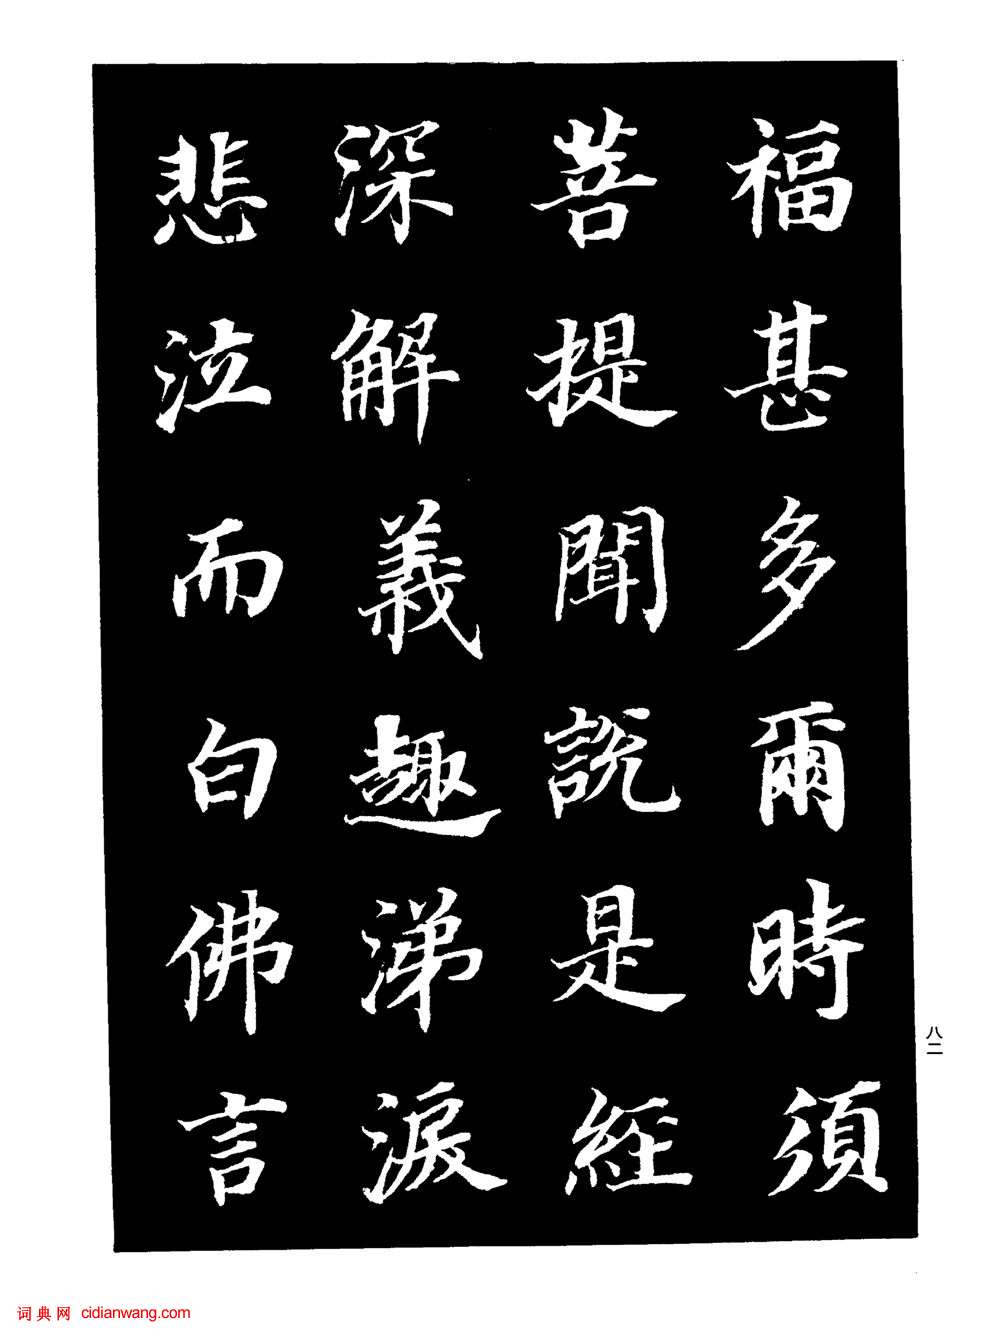 福甚多爾時須
菩提聞說是經
深解義趣涕淚
悲泣而白佛言
八二
词典网 cidianwang.com